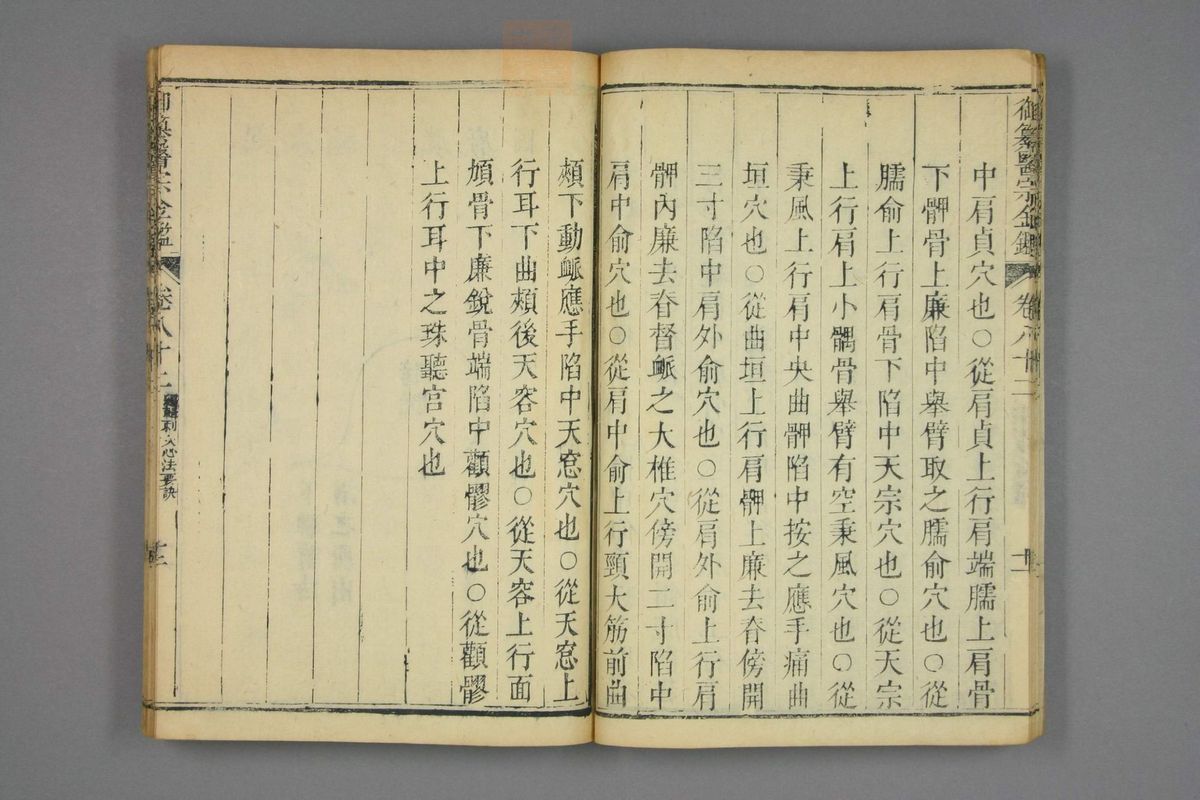 御纂醫宗金鑑
卷八十二
中肩貞穴也○從肩貞上行肩端臑上肩骨
下髀骨上廉陷中舉臂取之臑俞穴也○從
臑俞上行肩骨下陷中天宗穴也○從天宗
上行肩上小髃骨舉臂有空秉風穴也○從
秉風上行肩中央曲髀陷中按之應手痛曲
垣穴也○從曲垣上行肩髀上廉去脊傍開
三寸陷中肩外俞穴也○從肩外俞上行肩
髀內廉去脊督䘑之大椎穴傍開二寸陷中
肩中俞穴也○從肩中俞上行頸大筋前曲
頰下動䘑應手陷中天窓穴也○從天窓上
行耳下曲頰後天容穴也○從天容上行面
頄骨下廉銳骨端陷中顴髎穴也○從顴髎
上行耳中之珠聽宮穴也
御纂醫宗金鑑
卷八十二
刺灸心法要訣